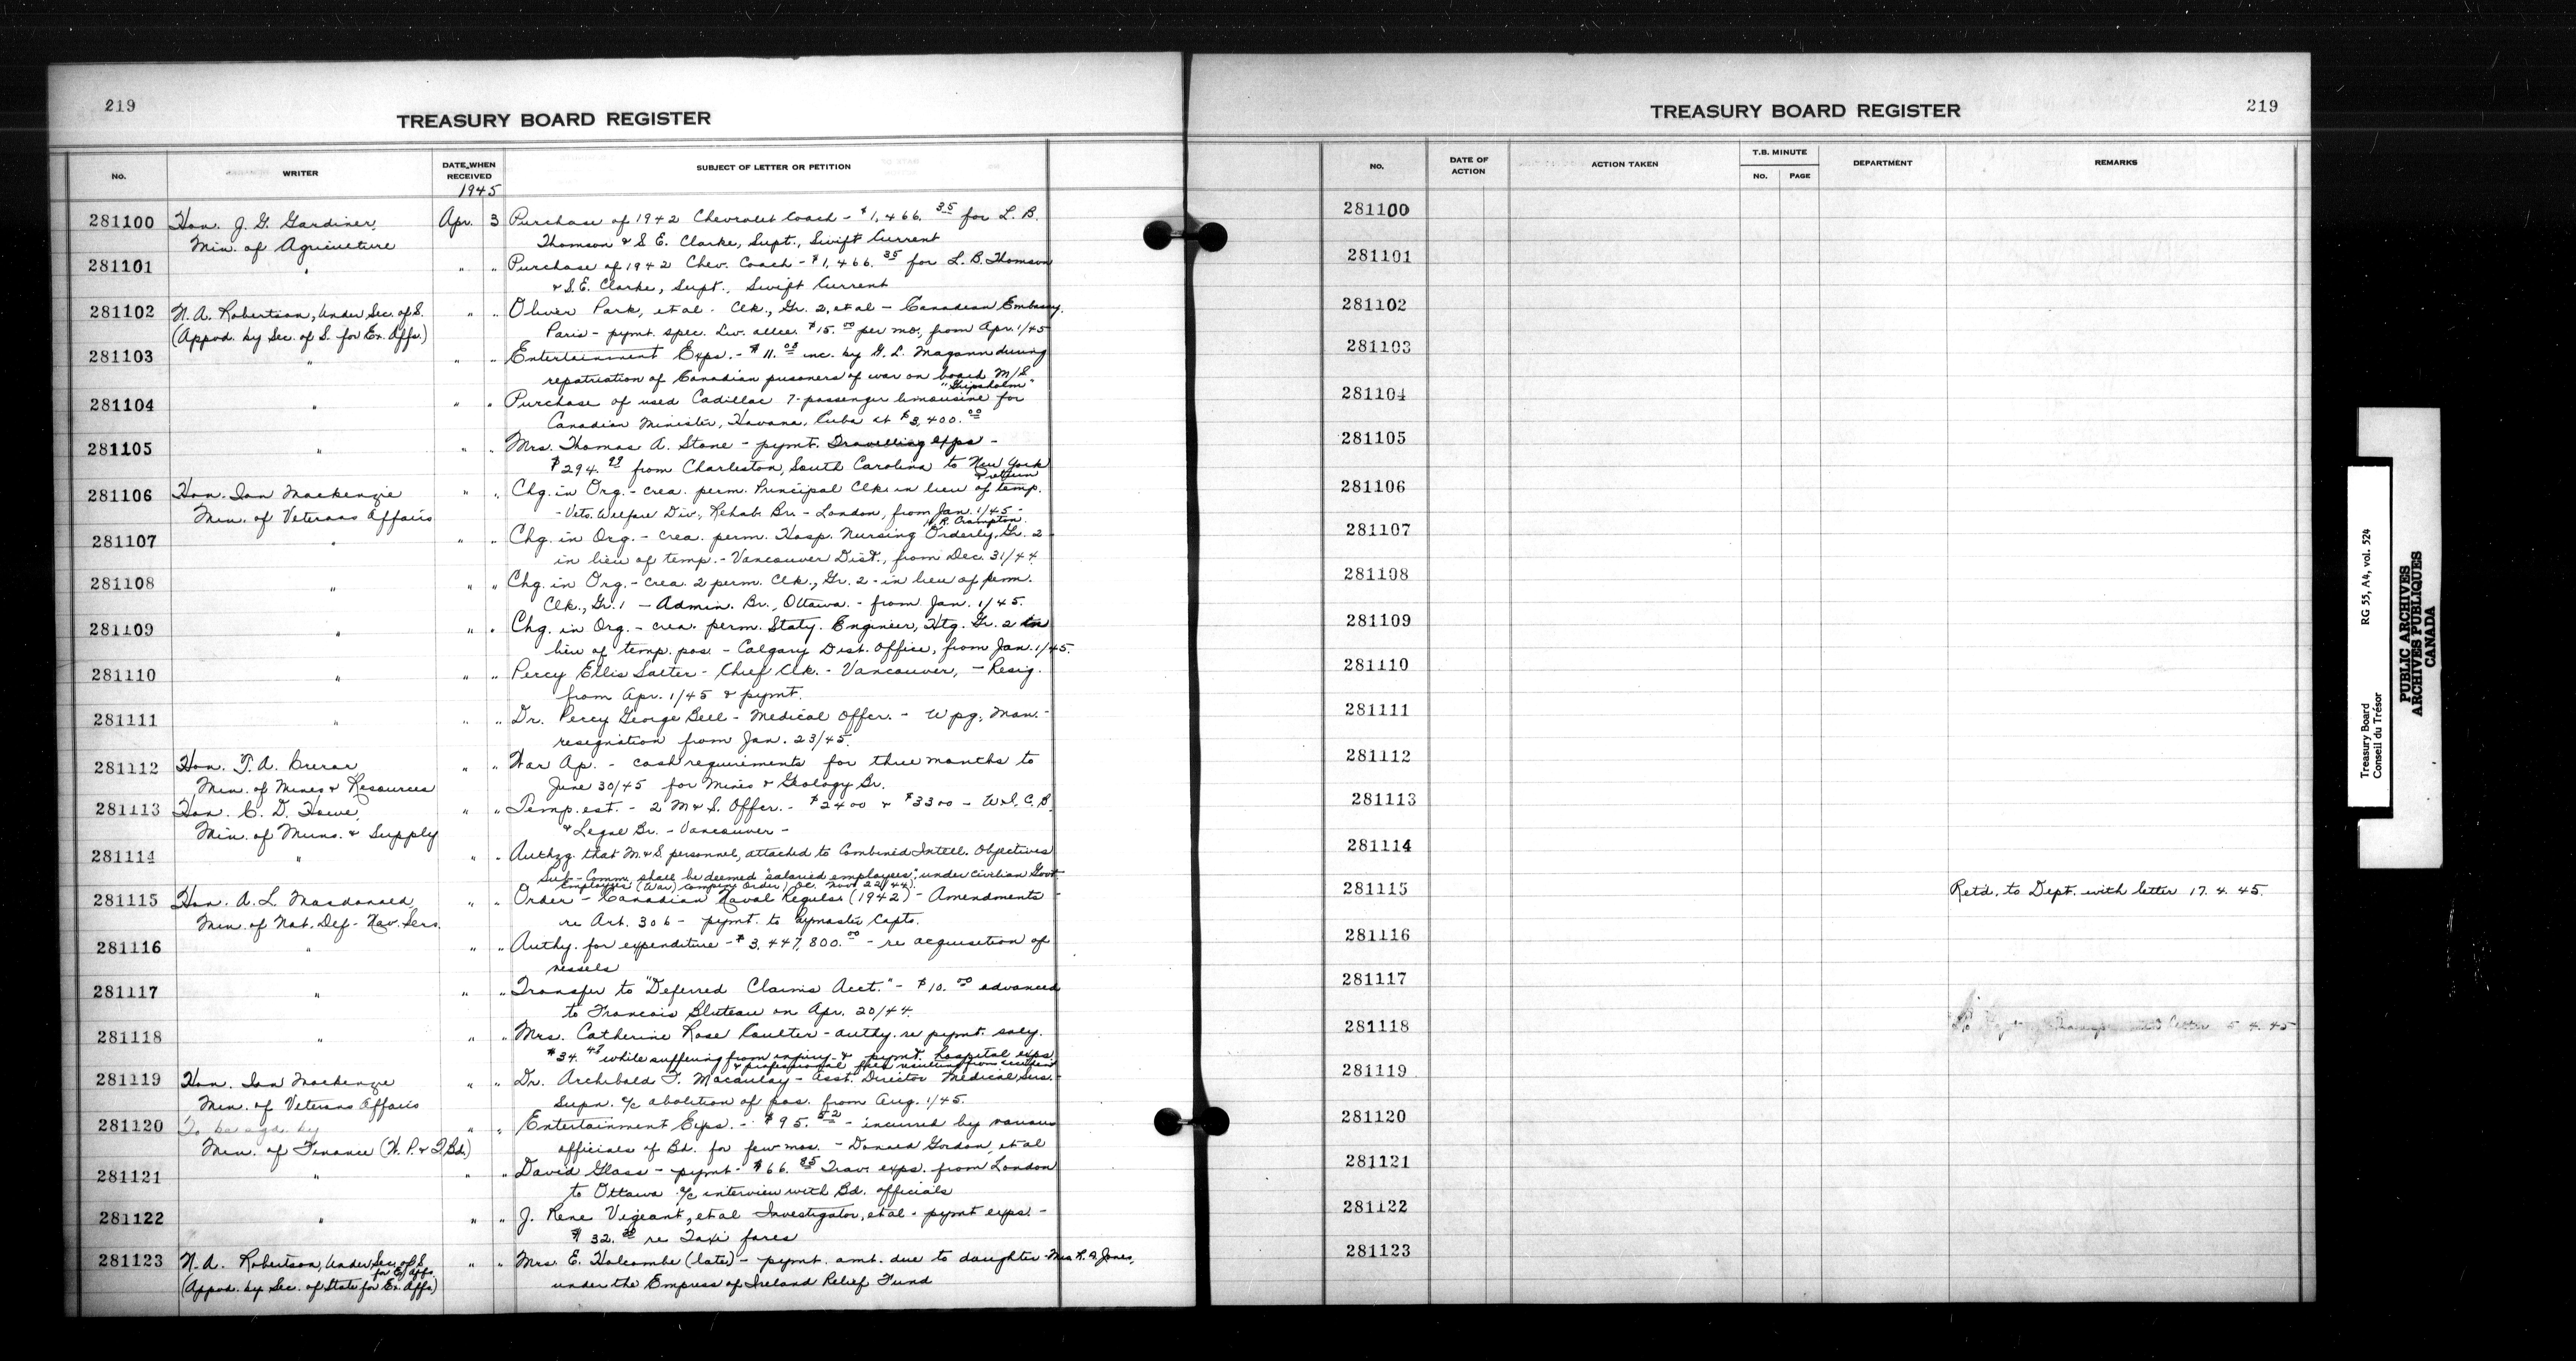 219
TREASURY BOARD REGISTER
No.
WRITER
DATE WHEN RECEIVED
SUBJECT OF LETTER OR PETITION
1945
281100 Hon. J. G. Gardiner, Apr. 3 Purchase of 1942 Chevrolet Coach - $1,466.35 for L. B.
Min. of Agriculture Thomson & S. E. Clarke, Supt., Swift Current
281101 " " " Purchase of 1942 Chev. Coach - $1,466.35 for L. B. Thomson
& S. E. Clarke, Supt., Swift Current
281102 N. A. Robertson, Under Sec. of S. " " Oliver Park, et al - Clk., Gr. 2, et al - Canadian Embassy,
(Appvd. by Sec. of S. for Ex. Affs.) Paris - pymt. spec. Liv. allce. $15.00 per mo., from Apr. 1/45
281103 " " " Entertainment Exps. - $11.08 inc. by G. L. Magann during
repatriation of Canadian prisoners of war on board M/S
"Gripsholm"
281104 " " " Purchase of used Cadillac 7-passenger limousine for
Canadian Minister, Havana, Cuba at $3,400.00
281105 " " " Mrs. Thomas A. Stone - pymt. Travelling exps -
$294. from Charleston, South Carolina to New York
& return
281106 Hon. Ian Mackenzie " " Chg. in Org. - crea. perm. Principal Clk. in lieu of temp.
Min. of Veterans Affairs - Vets. Welfare Div., Rehab. Br. - London, from Jan. 1/45 -
R. Crampton.
281107 " " " Chg. in Org. - crea. perm. Hosp. Nursing Orderly, Gr. 2
in lieu of temp. - Vancouver Dist., from Dec. 31/44.
281108 " " " Chg. in Org. - crea. 2 perm. Clk., Gr. 2 - in lieu of perm.
Clk., Gr. 1 - Admin. Br., Ottawa. - from Jan. 1/45.
281109 " " " Chg. in Org. - crea. perm. Staty. Engineer, Htg. Gr. 2 in
lieu of temp. pos. - Calgary Dist. Office, from Jan. 1/45.
281110 " " " Percy Ellis Salter - Chief Clk. - Vancouver, - Resig.
from Apr. 1/45 & pymt.
281111 " " " Dr. Percy George Bell - Medical Offcr. - Wpg. Man. -
resignation from Jan. 23/45.
281112 Hon. T. A. Crerar " " War Ap. - cash requirements for three months to
Min. of Mines & Resources June 30/45 for Mines & Geology Br.
281113 Hon. C. D. Howe, " " Temp. est. - 2 M & S. Offcr. - $2400 & $3300 - W.I.C.B.
Min. of Muns. & Supply & Legal Br. - Vancouver -
281114 " " " Authzg. that M. & S. personnel, attached to Combined Intell. Objectives
Sub-Comm. shall be deemed "salaried employees", under Civilian Govt.
Employees (War) Compen. Order, P.C. Nov. 22/44).
281115 Hon. A. L. Macdonald, " " Order - Canadian Naval Regulns (1942) - Amendments -
Min. of Nat. Def - Nav. Sers. re Art. 306 - pymt. to Paymaster Capts.
281116 " " " Authy. for expenditure - $3,447,800.00 - re acquisition of
vessels
281117 " " " Transfer to "Deferred Claims Acct." - $10.00 advanced
to Francois Bluteau on Apr. 20/44.
281118 " " " Mrs. Catherine Rose Coulter - authy. re pymt. saly.
$34.47 while suffering from injury - & pymt. hospital exps
& professional fees resulting from accident
281119 Hon. Ian Mackenzie " " Dr. Archibald T. Macaulay - Asst. Director Medical Sers. -
Min. of Veterans Affairs Supn. a/c abolition of pos. from Aug. 1/45.
281120 To be sgd. by " " Entertainment Exps. - $95.52 - incurred by various
Min. of Finance (W. P. & T. Bd.) officials of Bd. for few mos. - Donald Gordon, et al
281121 " " " David Glass - pymt - $66.85 Trav. exps. from London
to Ottawa a/c interview with Bd. officials
281122 " " " J. Rene Vigeant, et al - Investigator, et al - pymt exps. -
$32. re Taxi fares
281123 N. A. Robertson, Under Sec. of S. " " Mrs. E. Holcombe (late) - pymt. amt. due to daughter - Mrs. R. A. Jones,
for Ex. Affs
(Appvd. by Sec. of State for Ex. Affs) under the Empress of Ireland Relief Fund
TREASURY BOARD REGISTER
219
No.
DATE OF ACTION
ACTION TAKEN
T.B. MINUTE
No.
PAGE
DEPARTMENT
REMARKS
281100
281101
281102
281103
281104
281105
281106
281107
281108
281109
281110
281111
281112
281113
281114
281115 Retd. to Dept. with letter 17. 4. 45.
281116
281117
281118 5 4 45
281119
281120
281121
281122
281123
Treasury Board
Conseil du Trésor
RG 55, A4, vol. 524
PUBLIC ARCHIVES
ARCHIVES PUBLIQUES
CANADA